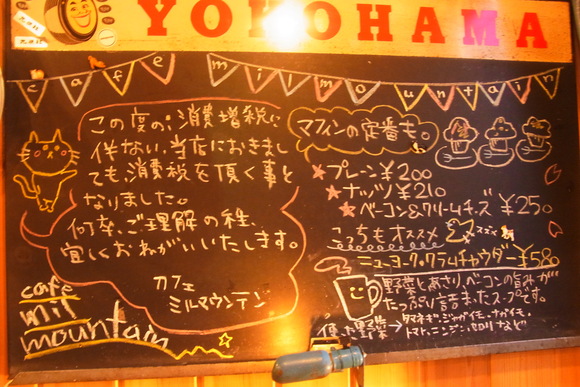 YOKOHAMA
cafe milmountain
この度の、消費増税に
伴ない、当店におきまし
ても、消費税を頂く事と
なりました。
何卒、ご理解の程、
宜しくおねがいいたします。
カフェ
ミルマウンテン
cafe
mil
mountain
マフィンの定番も。
プレーン¥200
ナッツ¥210
ベーコン&クリームチーズ ¥250
こっちもオススメ
ニューヨーク・クラムチャウダー¥580
野菜とあさり、ベーコンの旨みが
たっぷり詰まったスープです。
使った野菜→タマネギ・ジャガイモ・ナガイモ・
トマト、ニンジン・セロリなど